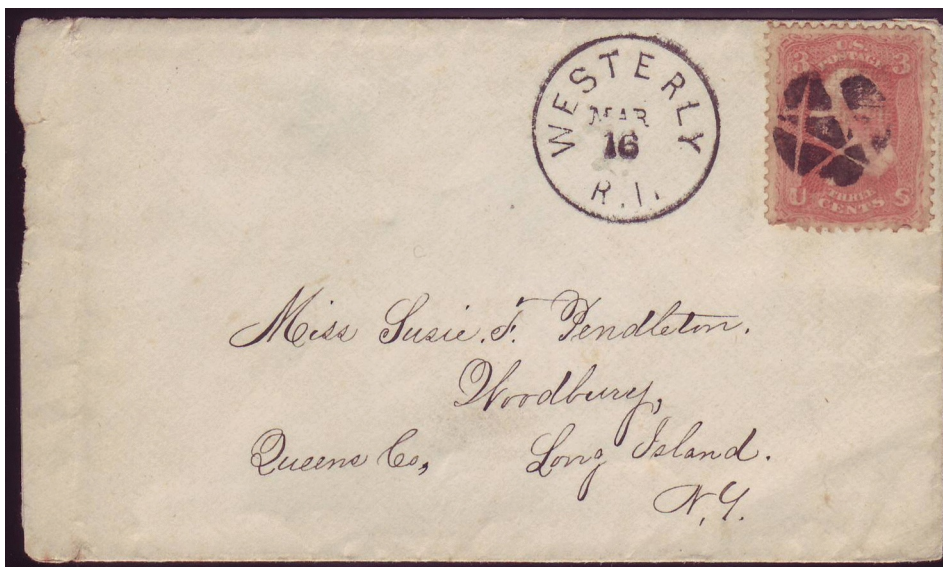 WESTERLY
MAR
16
R.I.
3 U.S. 3
POSTAGE
U THREE S
CENTS
Miss Susie. F. Pendleton.
Woodbury,
Queens Co, Long Island.
N.Y.